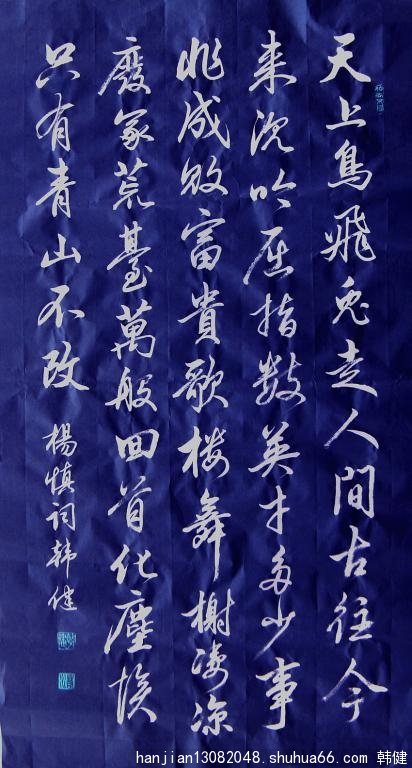 天上鳥飛兎走人間古往今
来沉吟屈指数英才多少事
非成败富貴歌楼舞榭凄凉
廢冢荒臺萬般回首化塵埃
只有青山不改 楊慎词韩健
hanjian13082048.shuhua66.com 韩健